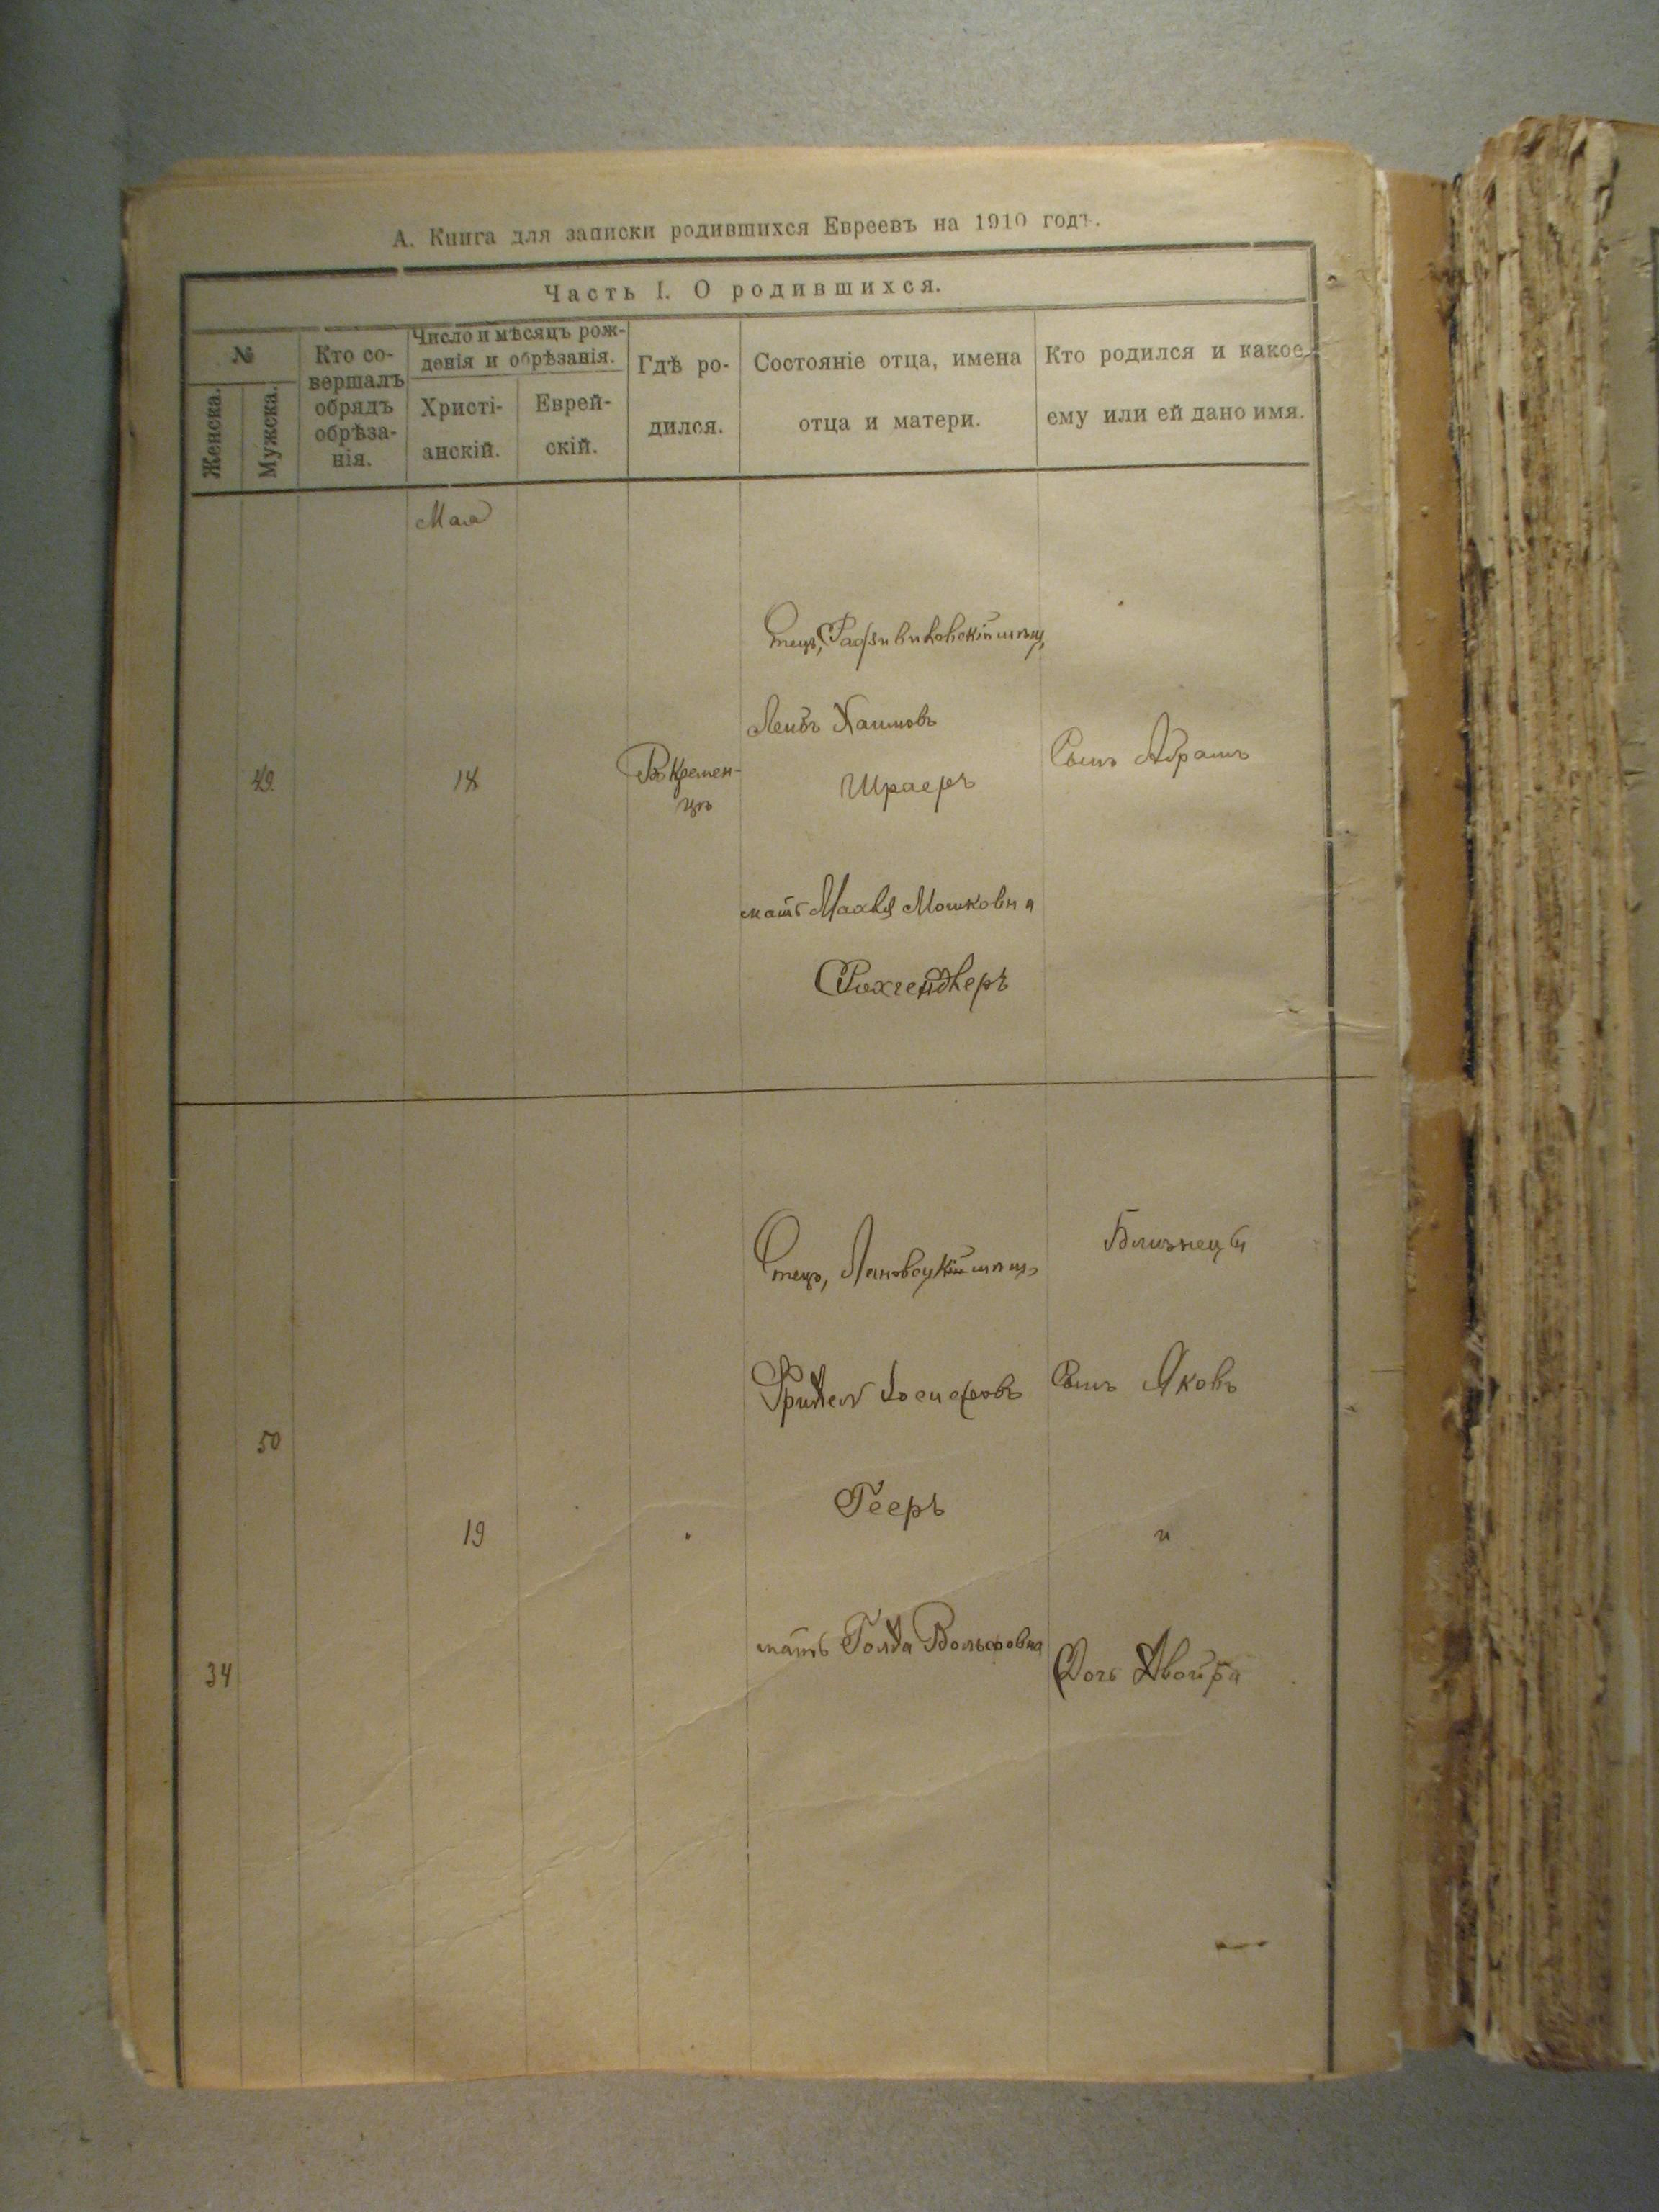 А. Книга для записки родившихся Евреевъ на 1910 годъ.
Часть I. О родившихся.
№
Женска.
Мужска.
Кто со-
вершалъ
обрядъ
обрѣза-
нія.
Число и мѣсяцъ рож-
денія и обрѣзанія.
Христі-
анскій.
Еврей-
скій.
Гдѣ ро-
дился.
Состояніе отца, имена
отца и матери.
Кто родился и какое
ему или ей дано имя.
Мая
49
18
Въ Кремен-
цѣ
Отецъ, мѣщ,
Лейбъ Хаимовъ
Шраеръ
мать Мошковна
Сынъ Абрамъ
50
34
19
Отецъ, Лановецкій мѣщ,
Фридель Іосифовъ
Гееръ
мать Голда Вольфовна
Близнецы
Сынъ Яковъ
и
Дочь Двойра